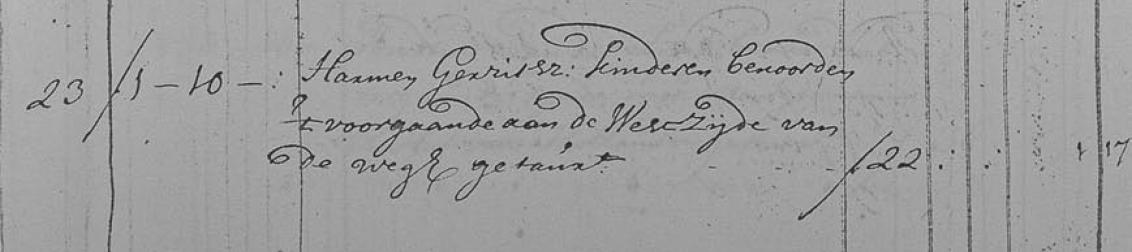 23 / 1 - 10 - : Harmen Gerritsz: kinderen benoorden
't voorgaande aan de WestZijde van
de weg getaux.t /22 : : 1 17